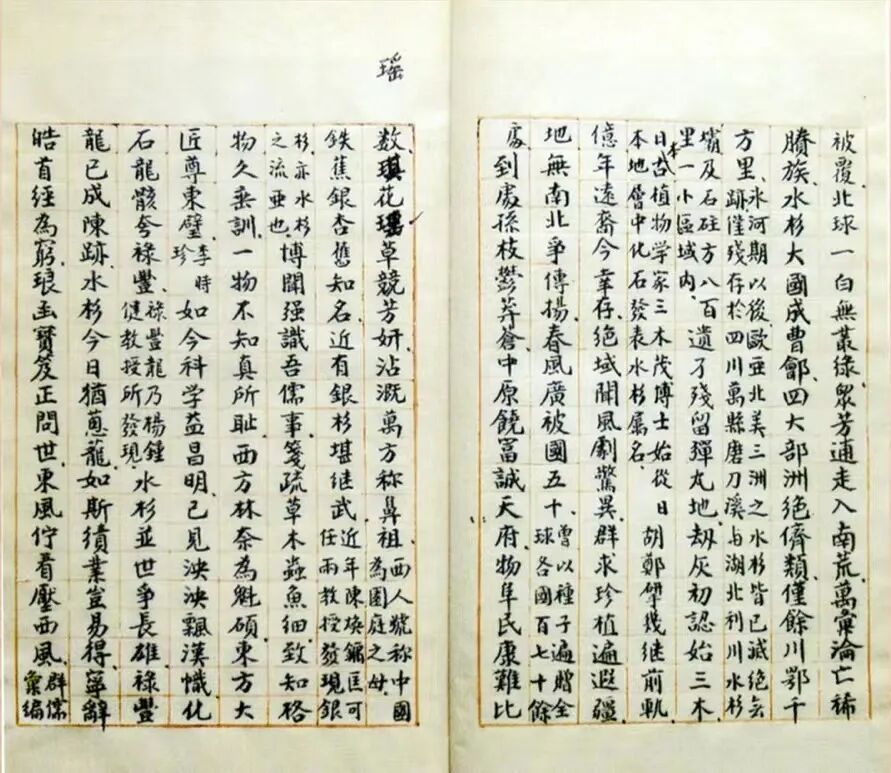 被覆北球一白無叢綠眾芳逋走入南荒萬彙淪亡稀
賸族水杉大國成曹鄶四大部洲絕儕類僅餘川鄂千
方里氷河期以後歐亞北美三洲之水杉皆已滅絕矣
跡僅殘存於四川萬縣磨刀溪与湖北利川水杉
壩及石砫方八百
里一小區域內遺孑殘留彈丸地劫灰初認始三木
日本古植物学家三木茂博士始從日
本地層中化石發表水杉属名胡鄭擘幾継前軌
億年遠裔今幸存絕域聞風劇驚異群求珍植遍遐疆
地無南北爭傳揚春風廣被國五十曾以種子遍贈全
球各國百七十餘
處到處孫枝鬱莽蒼中原饒富誠天府物阜民康難比
瑶
数琪花瑶草競芳妍沾溉萬方称鼻祖西人號称中國
為園庭之母
鉄蕉銀杏舊知名近有銀杉堪継武近年陳煥鏞匡可
任兩教授發現銀
杉亦水杉
之流亞也博聞强識吾儒事箋疏草木蟲魚細致知格
物久垂訓一物不知真所耻西方林奈為魁碩東方大
匠尊東璧李時
珍如今科学益昌明已見泱泱飄漢幟化
石龍骸夸祿豐祿豐龍乃楊鍾
健教授所發現水杉並世爭長雄祿豐
龍已成陳跡水杉今日猶葱蘢如斯績業豈易得寧辭
皓首經為窮琅函寳笈正問世東風佇看壓西風群儒
彙編